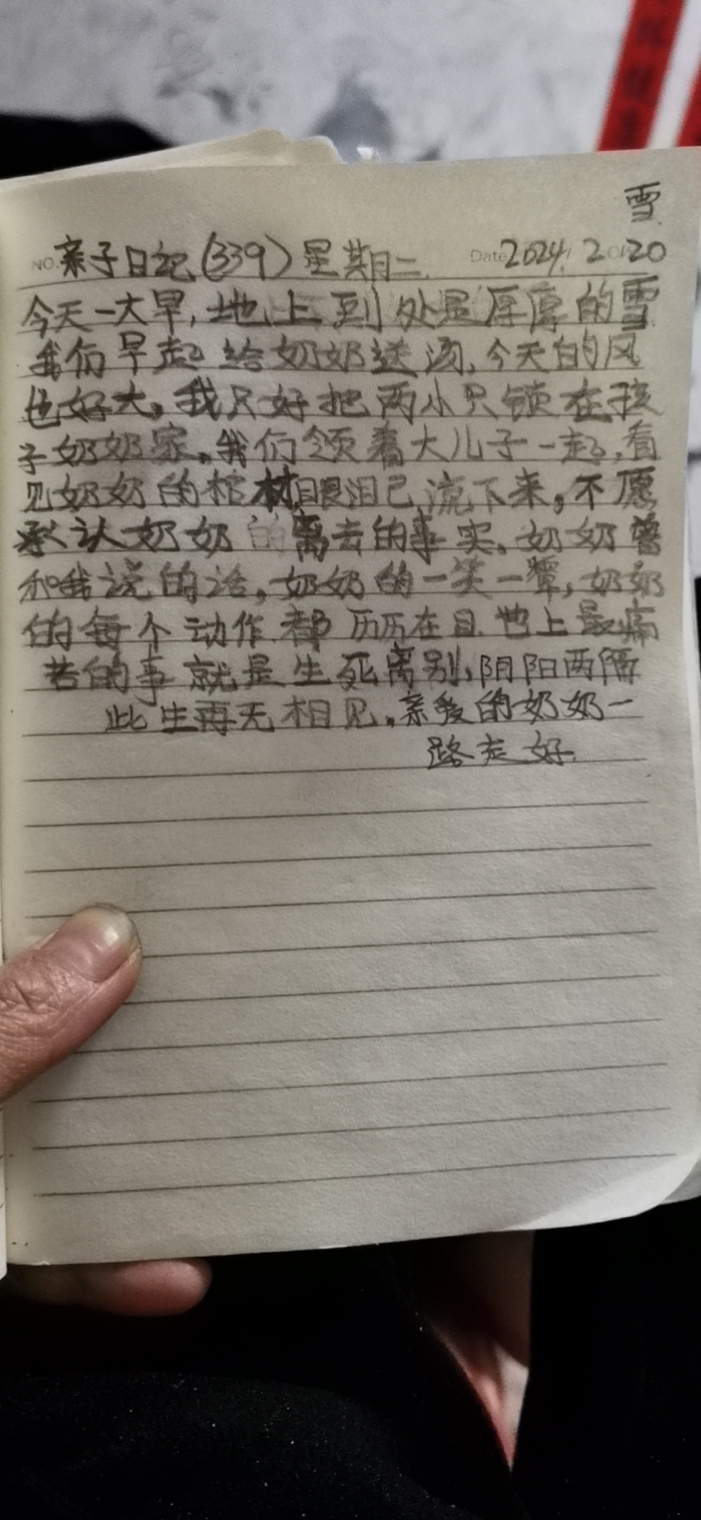 雪
NO. 亲子日记(339) 星期二 Date 2024. 2. 20
今天一大早,地上到处是厚厚的雪
我们早起给奶奶送汤,今天的风
也好大。我只好把两小只锁在孩
子奶奶家。我们领着大儿子一起,看
见奶奶的棺材眼泪已流下来。不愿
承认奶奶的离去的事实。奶奶曾
和我说的话,奶奶的一笑一颦,奶奶
的每个动作都历历在目.世上最痛
苦的事就是生死离别,阴阳两隔
此生再无相见。亲爱的奶奶一
路走好.